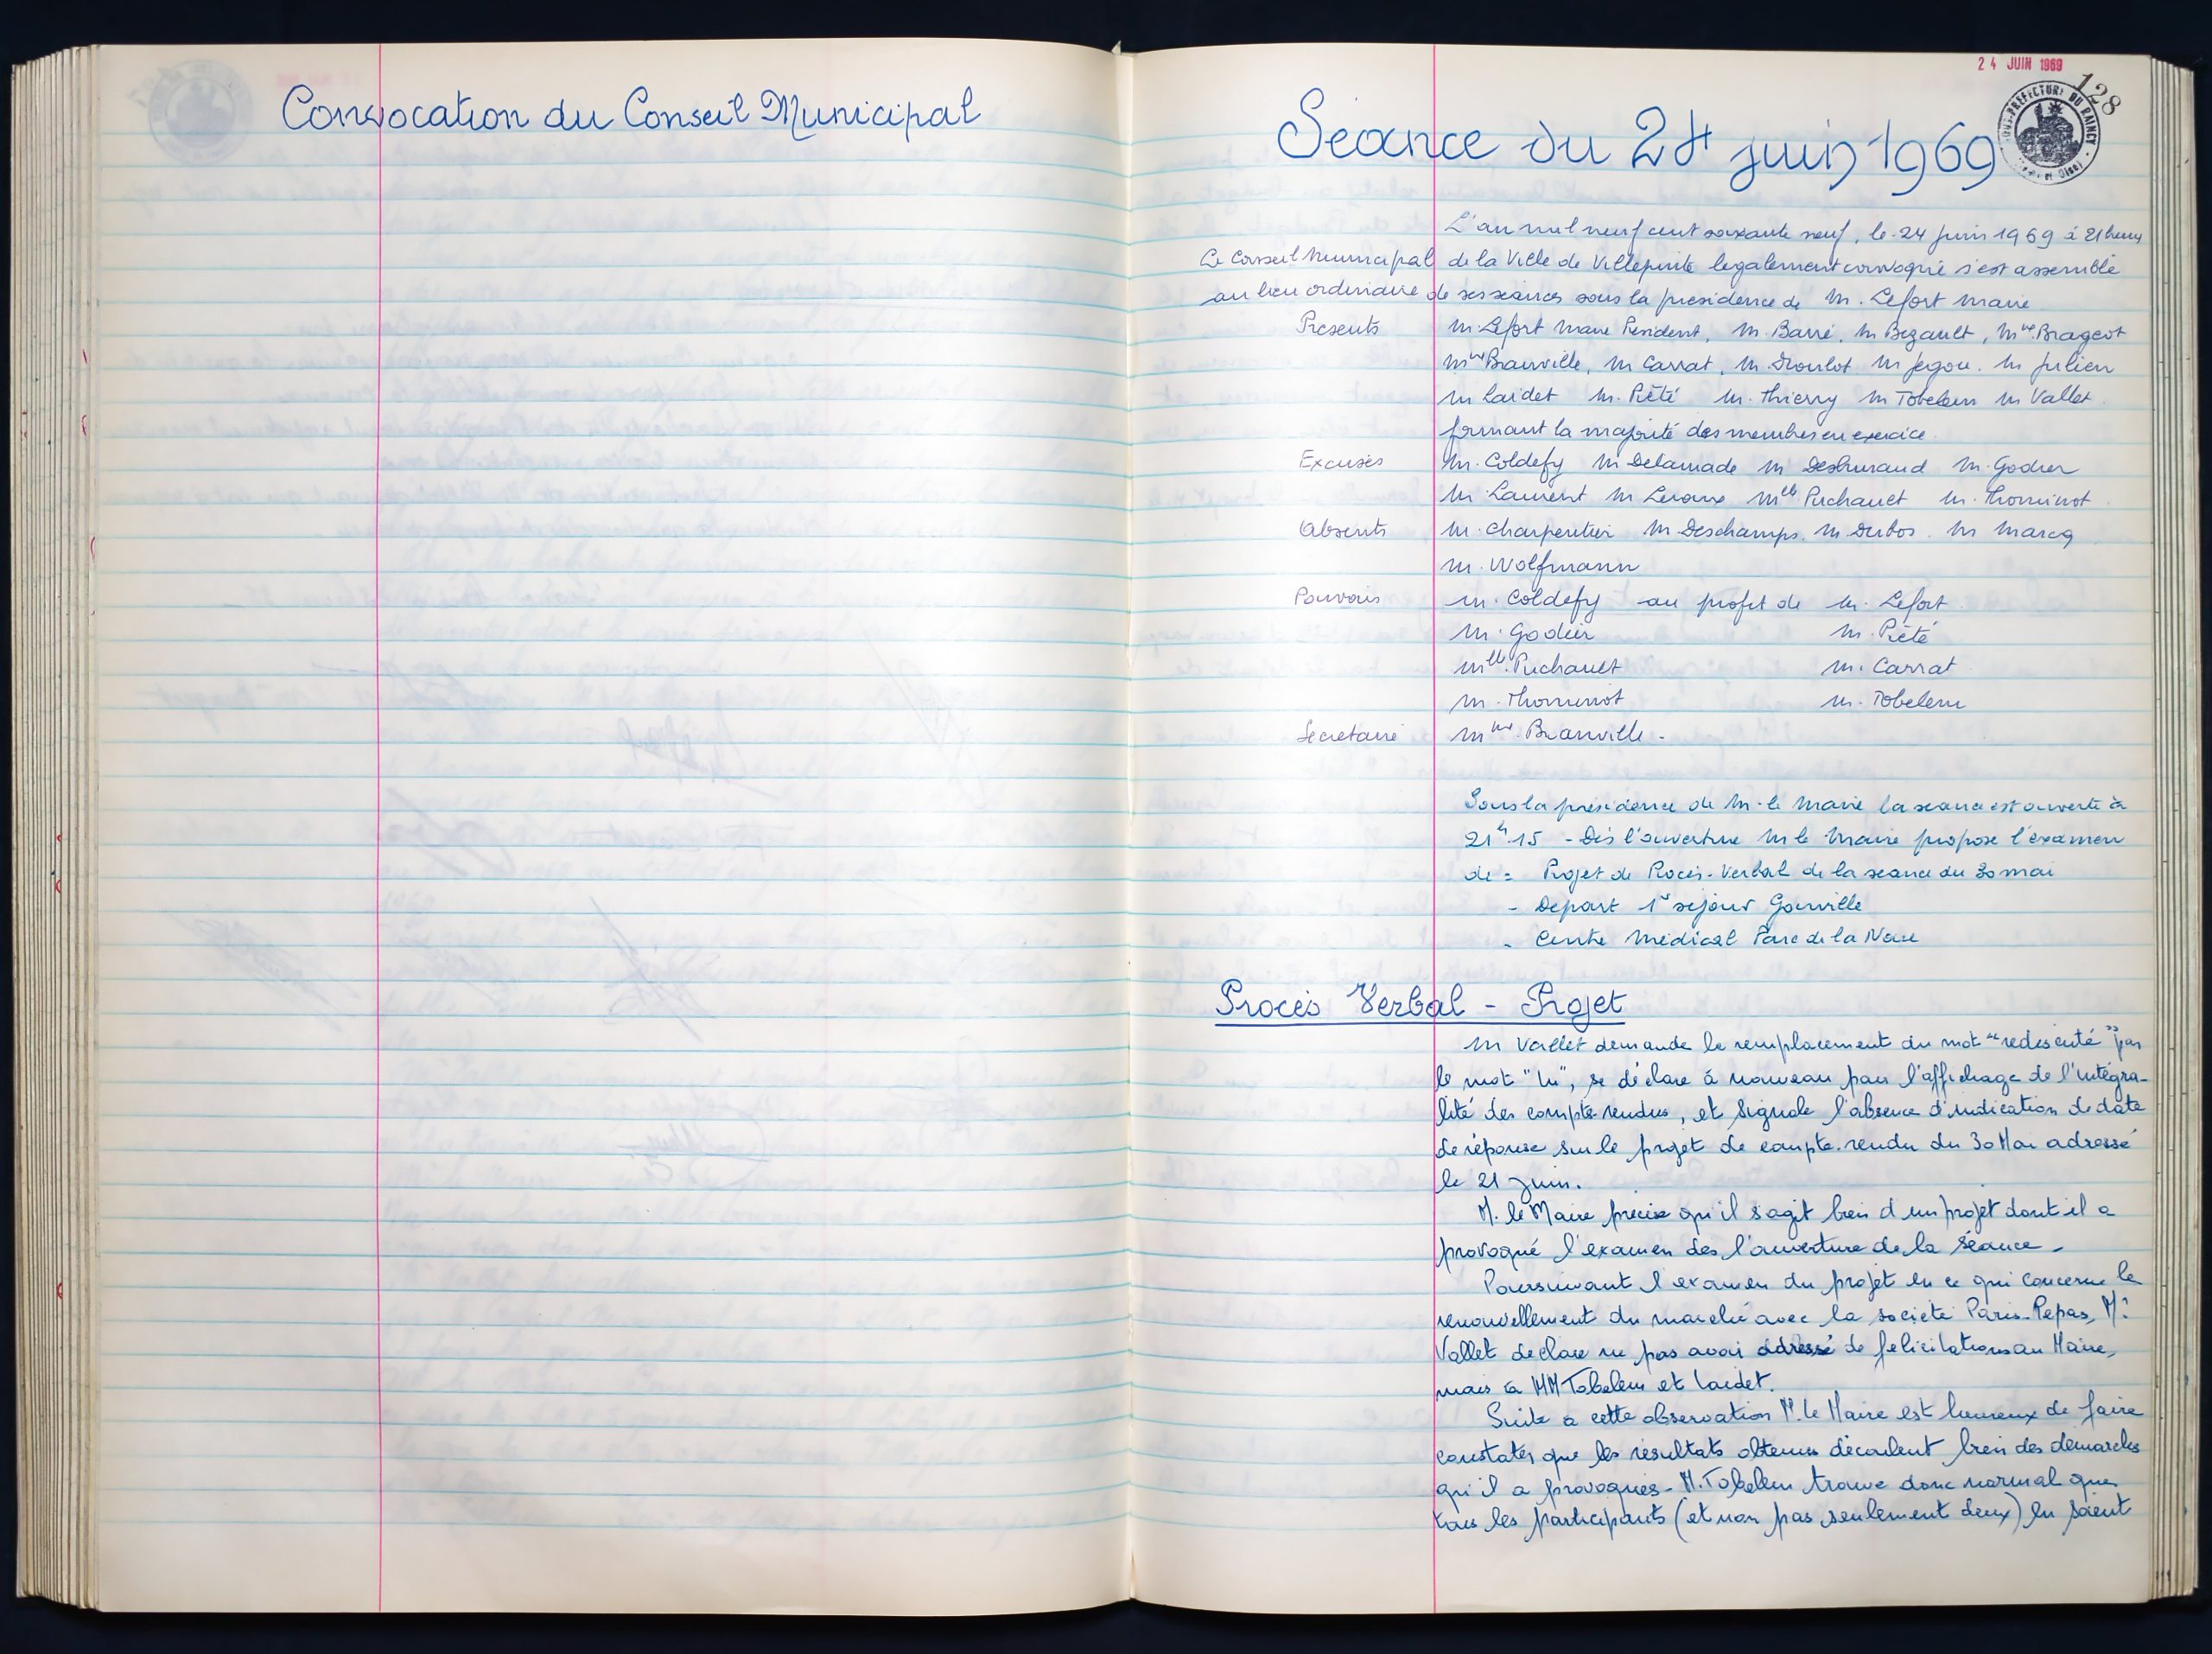 Convocation du Conseil Municipal
24 JUIN 1969
128
SOUS-PREFECTURE DU RAINCY
Séance du 24 juin 1969
L'an mil neuf cent soixante neuf, le 24 juin 1969 à 21 heures
Le Conseil Municipal de la Ville de Villepinte legalement convoqué s'est assemblé
au lieu ordinaire de ses séances sous la présidence de M. Lefort Maire
Présents M. Lefort Maire Président, M. Barré, M Bezault, Mme Brageot
Mme Branville, M Carrat, M. Droulot M Jegou. M Julien
M Laidet M. Piété M. Thierry M Tobelem M Vallet.
formant la majorité des membres en exercice.
Excusés M. Coldefy M Delamade M Deshuraud M. Godier
M Laurent M Leroux Mlle Puchault M. Thominot
Absents M. Charpentier M Deschamps. M Dubos. M Marcq
M. Wolfmann
Pouvoirs M. Coldefy au profit de M. Lefort.
M. Godier M. Piété
Mlle Puchault M. Carrat
M. Thominot M. Tobelem
Secrétaire Mme Branville.
Sous la présidence de M. le Maire la séance est ouverte à
21h.15 - Dès l'ouverture M le Maire propose l'examen
de = Projet de Procès-Verbal de la séance du 30 mai
- Départ 1er séjour Gouville
- Centre Médical Parc de la Noue
Procès Verbal - Projet
M Vallet demande le remplacement du mot "rediscuté" par
le mot "lu", se déclare à nouveau pour l'affichage de l'intégra-
lité des compte-rendus, et signale l'absence d'indication de date
de réponse sur le projet de compte-rendu du 30 Mai adressé
le 21 juin.
M. le Maire précise qu'il s'agit bien d'un projet dont il a
provoqué l'examen dès l'ouverture de la séance.
Poursuivant l'examen du projet en ce qui concerne le
renouvellement du marché avec la société Paris-Repas, Mr
Vallet déclare ne pas avoir adressé de félicitations au Maire,
mais à MM Tobelem et Laidet.
Suite à cette observation M. le Maire est heureux de faire
constater que les résultats obtenus découlent bien des démarches
qu'il a provoquées - M. Tobelem trouve donc normal que
tous les participants (et non pas seulement deux) en soient